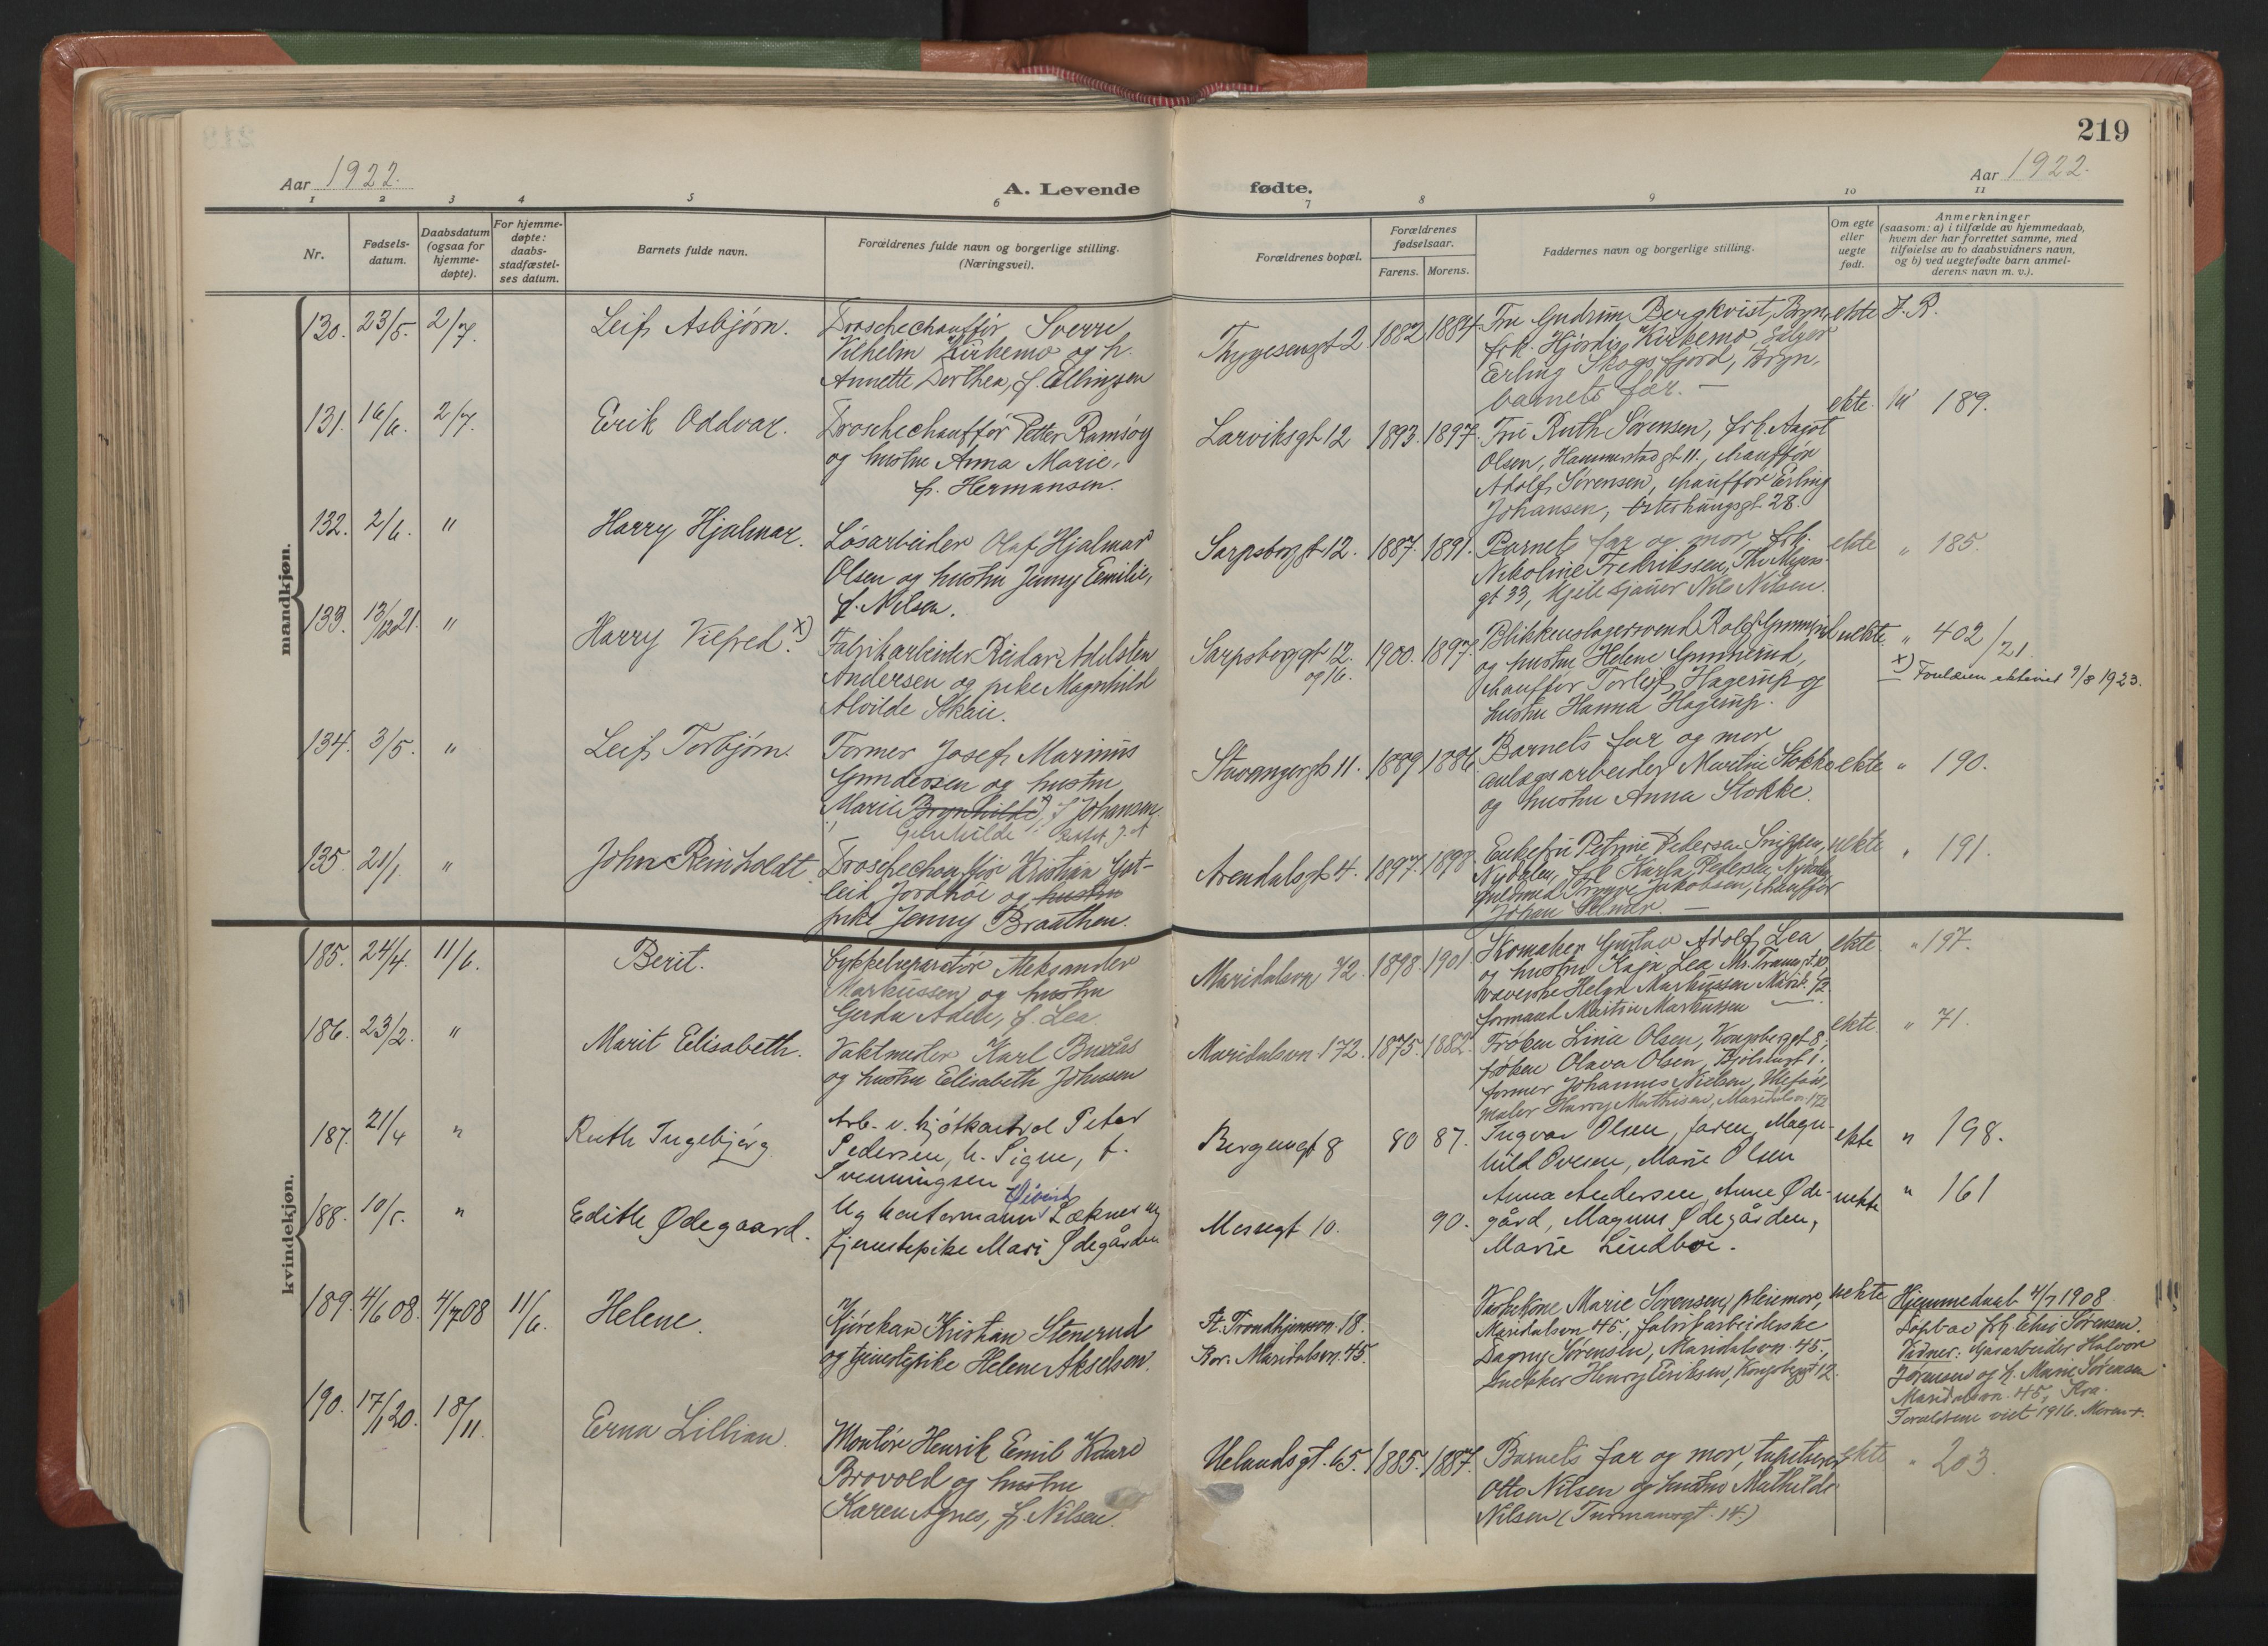 219
Aar 1922.
A. Levende fødte.
Aar 1922.
1 2 3 4 5 6 7 8 9 10 11
Nr.
Fødsels-
datum.
Daabsdatum
(ogsaa for
hjemme-
døpte).
For hjemme-
døpte:
daabs-
stadfæstel-
ses datum.
Barnets fulde navn.
Forældrenes fulde navn og borgerlige stilling.
(Næringsvei).
Forældrenes bopæl.
Forældrenes
fødselsaar.
Farens. Morens.
Faddernes navn og borgerlige stilling.
Om egte
eller
uegte
født.
Anmerkninger
(saasom: a) i tilfælde av hjemmedaab,
hvem der har forrettet samme, med
tilføielse av to daabsvidners navn,
og b) ved uegtefødte barn anmel-
derens navn m. v.).
mandkjøn.
130. 23/5. 2/7. Leif Asbjørn.
Droschechauffør Sverre
Vilhelm Kirkemo og h.
Annette Dorthea, f. Ellingsen
Thygesensgt 2 1882 1884
Fru Gudrun Bergkvist, Bryn,
frk. Hjørdis Kirkemo, selger
Erling Skogsfjord, Bryn,
barnets far. —
ekte F. R.
131. 16/6. 2/7. Erik Oddvar.
Droschechauffør Petter Ramsøy
og hustru Anna Marie,
f. Hermansen.
Larviksgt 12 1893. 1897.
Fru Ruth Sørensen, frk. Aagot
Olsen, Hammerstadgt 11., chauffør
Adolf Sørensen, chauffør Erling
Johansen, Østerhausgt 28.
ekte. 189.
132. 2/6. " Harry Hjalmar.
Løsarbeider Olaf Hjalmar
Olsen og hustru Jenny Emilie,
f. Nilsen.
Sarpsborggt 12. 1887. 1891.
Barnets far og mor, frk.
Nikoline Fredrikssen, Th. Meyers
gt 33, Nils Nilsen.
ekte " 185.
133. 13/12 21. " Harry Vilfred. x)
Fabrikarbeider Reidar Adelsten
Andersen og pike Magnhild
Alvilde Skaie.
Sarpsborggt 12.
og 16. 1900. 1897.
Blikkenslagersvend Rolf Grunnerud
og hustru Helene Grunnerud,
chauffør Torleif Hagerup og
hustru Hanna Hagerup.
uekte. " 402/21.
x) Forældrene ektevied 9/8 1923.
134. 3/5. " Leif Torbjørn.
Former Josef Marinus
Gundersen og hustru
Marie Brynhilde, f. Johansen
Stavangergt 11. 1889 1886.
Barnets far og mor
anlægsarbeider Martin Stokke
og hustru Anna Stokke.
ekte " 190.
135. 21/1. " John Reinholdt
Droschechauffør Kristian Got-
leid Jordhøi og hustru
pike Jenny Braathen.
Arendalsgt 4. 1897. 1898
Enkefru Petrine Pedersen
Nydalen, frk Karla Pedersen, Nydalen
Trygve Jakobsen, chauffør
Johan
uekte " 191.
kvindekjøn.
185. 24/4. 11/6. Berit.
Cykkelreparatør Aleksander
Markussen og hustru
Gerda Adele, f. Lea.
Maridalsvn 72. 1898. 1901.
Skomaker Gustav Adolf Lea
og hustru Kaja Lea
væverske Helga Markussen Marid. 72
formand Martin Markussen
ekte. " 197.
186. 23/2. " Marit Elisabeth.
Vaktmester Karl Buraas
og hustru Elisabeth Johnsen
Maridalsvn 172. 1875. 1882.
Frøken Lina Olsen, Kongsberggt 8,
frøken Olava Olsen, Bjølsengt 1.
former Johannes Nielsen, Ulefoss,
maler Harry Mathisen, Maridalsvn 172
ekte. " 71.
187. 21/4 " Ruth Ingebjørg
Arb. v. kjøtkontrol Peter
Pedersen, h. Signe, f.
Svenningsen
Bergensgt 8 80 87.
Ingvar Olsen, faren, Magn-
hild Ovesen, Marie Olsen
ekte " 198.
188. 10/5. " Edith Ødegaard.
Ug kontormann Øivind Løknes og
tjenestepike Mari Ødegården
Mossegt 10. 90.
Anna Andersen, Anne Øde-
gård, Magnus Ødegården,
Marie Lindboe.
uekte " 161
189. 4/6 08. 4/7 08 11/6. Helene.
Kjørekar Kristian Stenerud
og tjenestepike Helene Akselsen.
St. Trondhjemsvn. 18.
Bor. Maridalsvn. 45.
Vaskekone Marie Sørensen, pleiemor,
Maridalsvn 45., fabrikarbeiderske
Dagny Sørensen, Maridalsvn. 45.,
snekker Henry Eriksen, Kongsberggt 12.
uekte
Hjemmedaab 4/7 1908
Døpt av frk. Elvi Sørensen.
Vidner: Gasarbeider Halvor
Sørensen og h. Marie Sørensen
Maridalsvn. 45, Kra.
Forældrene viet 1916. Moren †.
190. 17/1 20. 18/11. Erna Lillian.
Montør Henrik Emil Kaare
Brovold og hustru
Karen Agnes, f. Nilsen.
Uelandsgt. 65. 1885. 1887.
Barnets far og mor, tapetserer
Otto Nilsen og hustru Mathilde
Nilsen (Turmansgt. 14.)
ekte " 203.